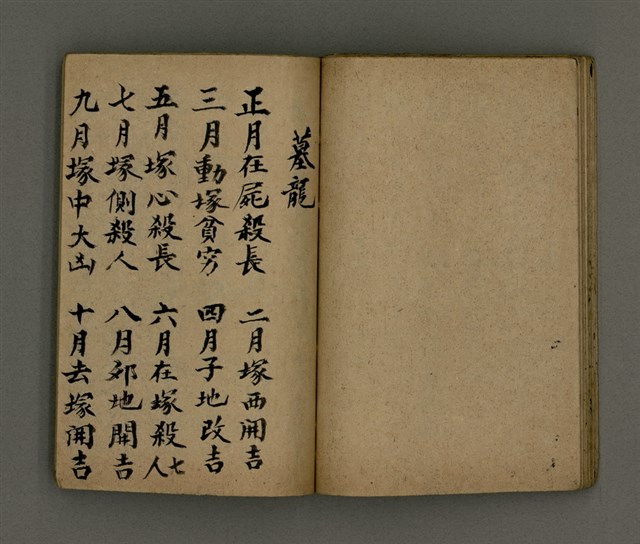 墓龍
正月在屍殺長 二月塚西開吉
三月動塚貧穷 四月子地改吉
五月塚心殺長 六月在塚殺人七
七月塚側殺人 八月卯地開吉
九月塚中大凶 十月去塚開吉